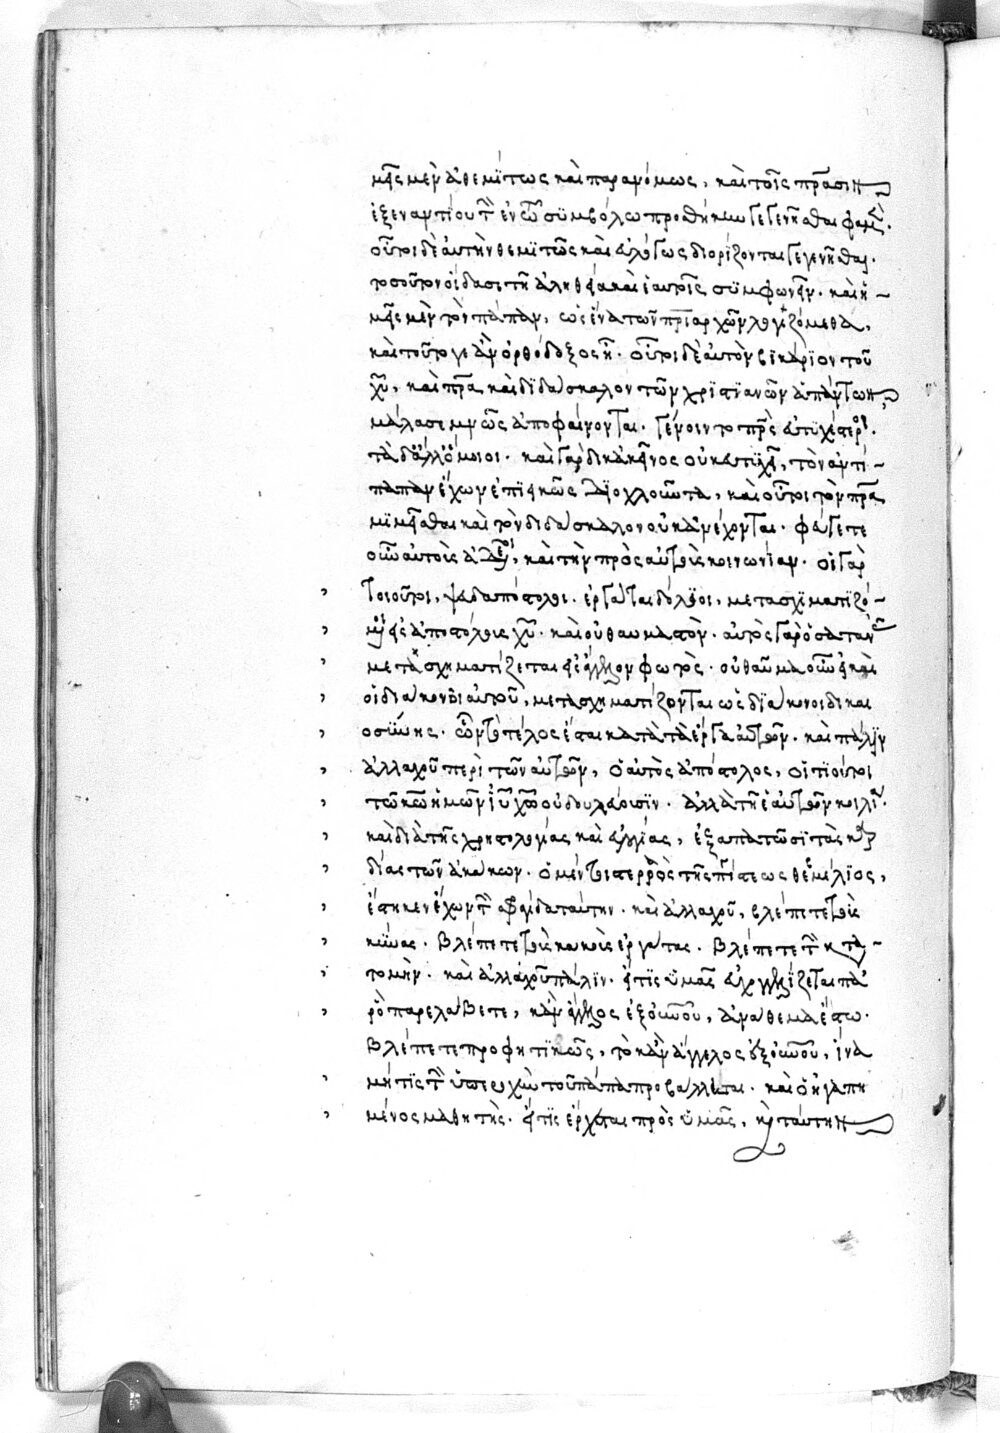 μεῖς μὲν ἀθεμίτως καὶ παρανόμως, καὶ τοῖς πράσιν
ἐξεναντίου τὴν ἐν τῷ συμβόλω προσθήκην γεγενῆσθαι φαμὲν.
οὗτοι δὲ αὐτὴν θεμιτῶς καὶ εὐλόγως διορίζονται γεγενῆσθαι.
τοσοῦτον οἴδασι τῇ ἀληθείᾳ καὶ ἑαυτοῖς συμφωνεῖν. καὶ ἡ-
μεῖς μὲν τὸν πάπαν, ὡς ἕνα τῶν πατριαρχῶν λογιζόμεθα,
καὶ τοῦτο γε ἂν ὀρθόδοξος ἦ. οὗτοι δὲ αὐτὸν βικάριον τοῦ
χυ, καὶ πρα καὶ διδάσκαλον τῶν χριστιανῶν ἁπάντων,
μάλα σεμνῶς ἀποφαίνονται. γένοιντο τῷ πρὶ εὐτυχέστεροι.
τὰ δ' ἄλλ' ὅμοιοι. καὶ γὰρ δὴ κἀκεῖνος οὐκ εὐτυχεῖ, τὸν ἀντί-
παπαν ἔχων ἐπιεικῶς διοχλοῦντα, καὶ οὗτοι τὸν πρα
μιμεῖσθαι καὶ τὸν διδάσκαλον οὐκ ἀνέχονται. φεύγετε
οὖν αὐτοὺς ἀδελφοὶ, καὶ τὴν πρὸς αὐτοὺς κοινωνίαν. οἱ γὰρ
τοιοῦτοι, ψευδαπόστολοι. ἐργάται δόλιοι, μετασχηματιζό-
μενοι εἰς ἀποστόλους χυ. καὶ οὐ θαυμαστὸν. αὐτὸς γὰρ ὁ σατανᾶς
μετασχηματίζεται εἰς ἄγγελον φωτὸς. οὐ θαῦμα οὖν εἰ καὶ
οἱ διάκονοι αὐτοῦ, μετασχηματίζονται ὡς διάκονοι δικαι
οσύνης. ὧν τὸ τέλος ἔσται κατὰ τὰ ἔργα αὐτῶν. καὶ πάλιν
ἀλλαχοῦ περὶ τῶν αὐτῶν, ὁ αὐτὸς ἀπόστολος, οἱ τοιοῦτοι
τῷ κω ἡμῶν ιυ χω οὐ δουλεύουσιν. ἀλλὰ τῇ ἑαυτῶν κοιλία.
καὶ διὰ τῆς χρηστολογίας καὶ εὐλογίας, ἐξαπατῶσι τὰς καρ
δίας τῶν ἀκάκων. ὁ μέντοι στερρὸς τῆς πίστεως θεμέλιος,
ἕστηκεν ἔχων τὴν σφραγίδα ταύτην. καὶ ἀλλαχοῦ, βλέπετε τοὺς
κύνας. βλέπετε τοὺς κακοὺς ἐργάτας. βλέπετε τὴν κατα-
τομὴν. καὶ ἀλλαχοῦ πάλιν. εἴ τις ὑμᾶς εὐαγγελίζεται παρ'
ὃ παρελάβετε, κἂν ἄγγελος ἐξ οὐνοῦ, ἀνάθεμα ἔστω.
βλέπετε προφητικῶς, τὸ κἂν ἄγγελος ἐξ οὐνοῦ, ἵνα
μή τις τὴν ὑπεροχὴν τοῦ πάπα προβάλληται. καὶ ὁ ἠγαπη
μένος μαθητὴς. εἴ τις ἔρχεται πρὸς ὑμᾶς, καὶ ταύτην